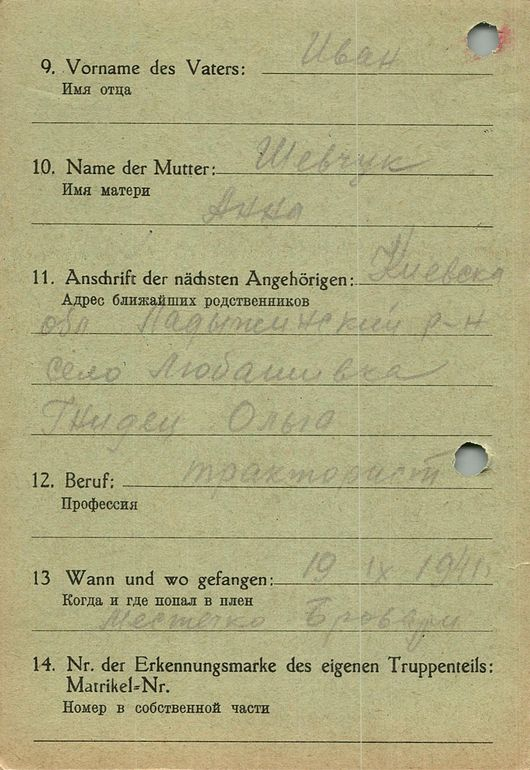 9. Vorname des Vaters: Иван
Имя отца
10. Name der Mutter: Шевчук
Имя матери
Анна
11. Anschrift der nächsten Angehörigen: Киевска
Адрес ближайших родственников
обл Ладыжинский р-н
село Любашивка
Гнидец Ольга
12. Beruf: тракторист
Профессия
13 Wann und wo gefangen: 19 IX 1941
Когда и где попал в плен
Местечко Бровари
14. Nr. der Erkennungsmarke des eigenen Truppenteils:
Matrikel-Nr.
Номер в собственной части